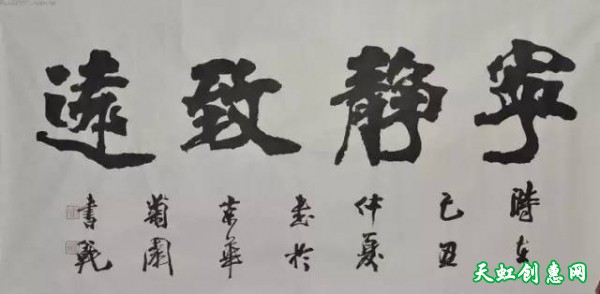 寧靜致遠
時在
己丑
仲夏
书於
京華
菊園
書範
天虹创惠网